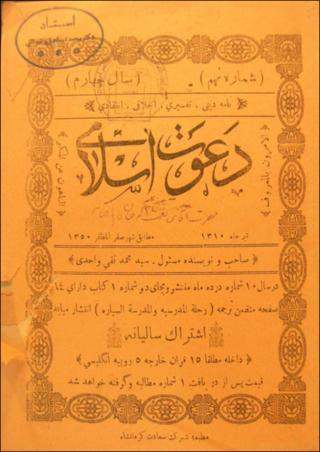 اسناد
(شماره نهم) (سال چهارم)
نامه دینی ، تفسیری ، اخلاقی ، انتقادی
الآمرون بالمعروف
الناهون عن المنکر
دعوت اسلامی
تیر ماه ۱۳۱۰ مطابق شهر صفر المظفر ۱۳۵۰
صاحب و نویسنده مسئول . سید محمد تقی واحدی
در سال ۱۰ شماره در ده ماه منتشر و بجای دو شماره ۱ کتاب دارای ۱۴
صفحه متضمن ترجمه (رحلة المدرسیه والمدرسة السیاره) انتشار میابد
اشتراک سالیانه
داخله مطلقا ۱۵ قران خارجه ۵ روپیه انگلیسی
قیمت پس از دریافت ۱ شماره مطالبه و گرفته خواهد شد
مطبعه شرکت سعادت کرمانشاه